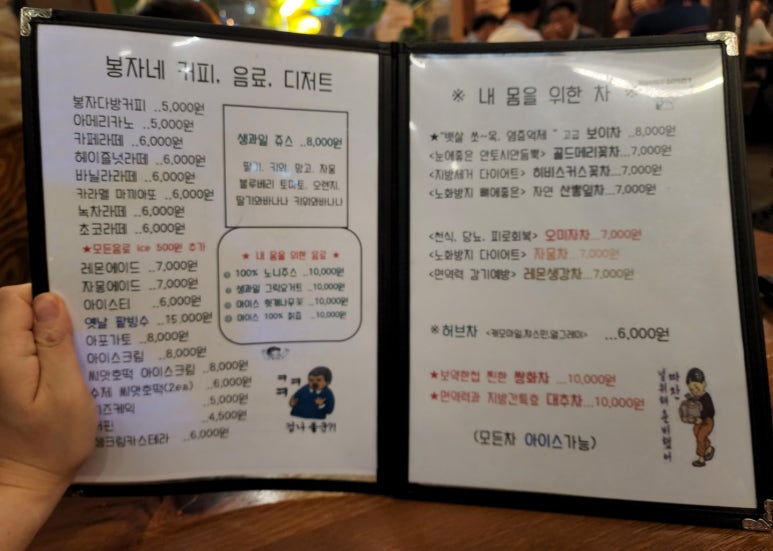 봉자네 커피, 음료, 디저트
봉자다방커피 ..5,000원
아메리카노 ..5,000원
카페라떼 ..6,000원
헤이즐넛라떼 ..6,000원
바닐라라떼 ..6,000원
카라멜 마끼아또 ..6,000원
녹차라떼 ..6,000원
초코라떼 ..6,000원
★모든음료 ice 500원 추가
레몬에이드 ..7,000원
자몽에이드 ..7,000원
아이스티 ..6,000원
옛날 팥빙수 ..15,000원
아포가토 ..8,000원
아이스크림 ..8,000원
씨앗호떡 아이스크림 ..8,000원
수제 씨앗호떡(2ea) ..6,000원
치즈케익 ..5,000원
..4,500원
생크림카스테라 ..6,000원
생과일 쥬스 ..8,000원
딸기, 키위, 망고, 자몽
블루베리 토마토, 오렌지,
딸기와바나나 키위와바나나
★ 내 몸을 위한 음료 ★
100% 노니쥬스 ..10,000원
생과일 그릭요거트 ..10,000원
아이스 헛개나무꽃 ..10,000원
아이스 100% 칡즙 ..10,000원
※ 내 몸을 위한 차 ※
★"뱃살 쏘~옥, 염증억제 " 고급 보이차 ..8,000원
<눈에좋은 안토시안듬뿍> 골드메리꽃차...7,000원
<지방제거 다이어트> 히비스커스꽃차...7,000원
<노화방지 뼈에좋은> 자연 산뽕잎차...7,000원
<천식, 당뇨, 피로회복> 오미자차...7,000원
<노화방지 다이어트> 자몽차...7,000원
<면역력 감기예방> 레몬생강차...7,000원
※허브차 <캐모마일,쟈스민,얼그레이> ...6,000원
★보약한첩 찐한 쌍화차 ...10,000원
★면역력과 지방간특효 대추차...10,000원
(모든차 아이스가능)